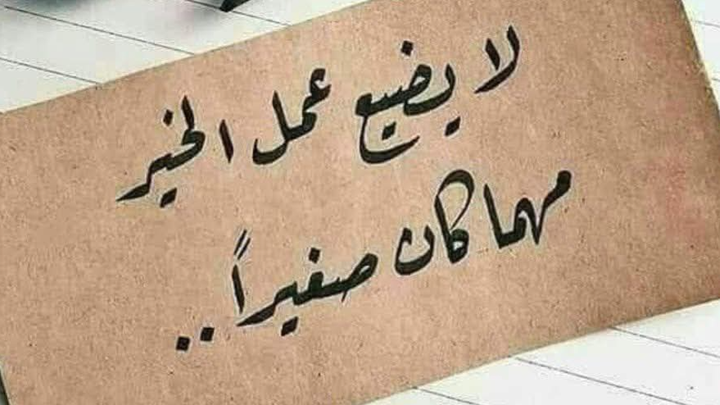 لا يضيع عمل الخير
مهما كان صغيراً..